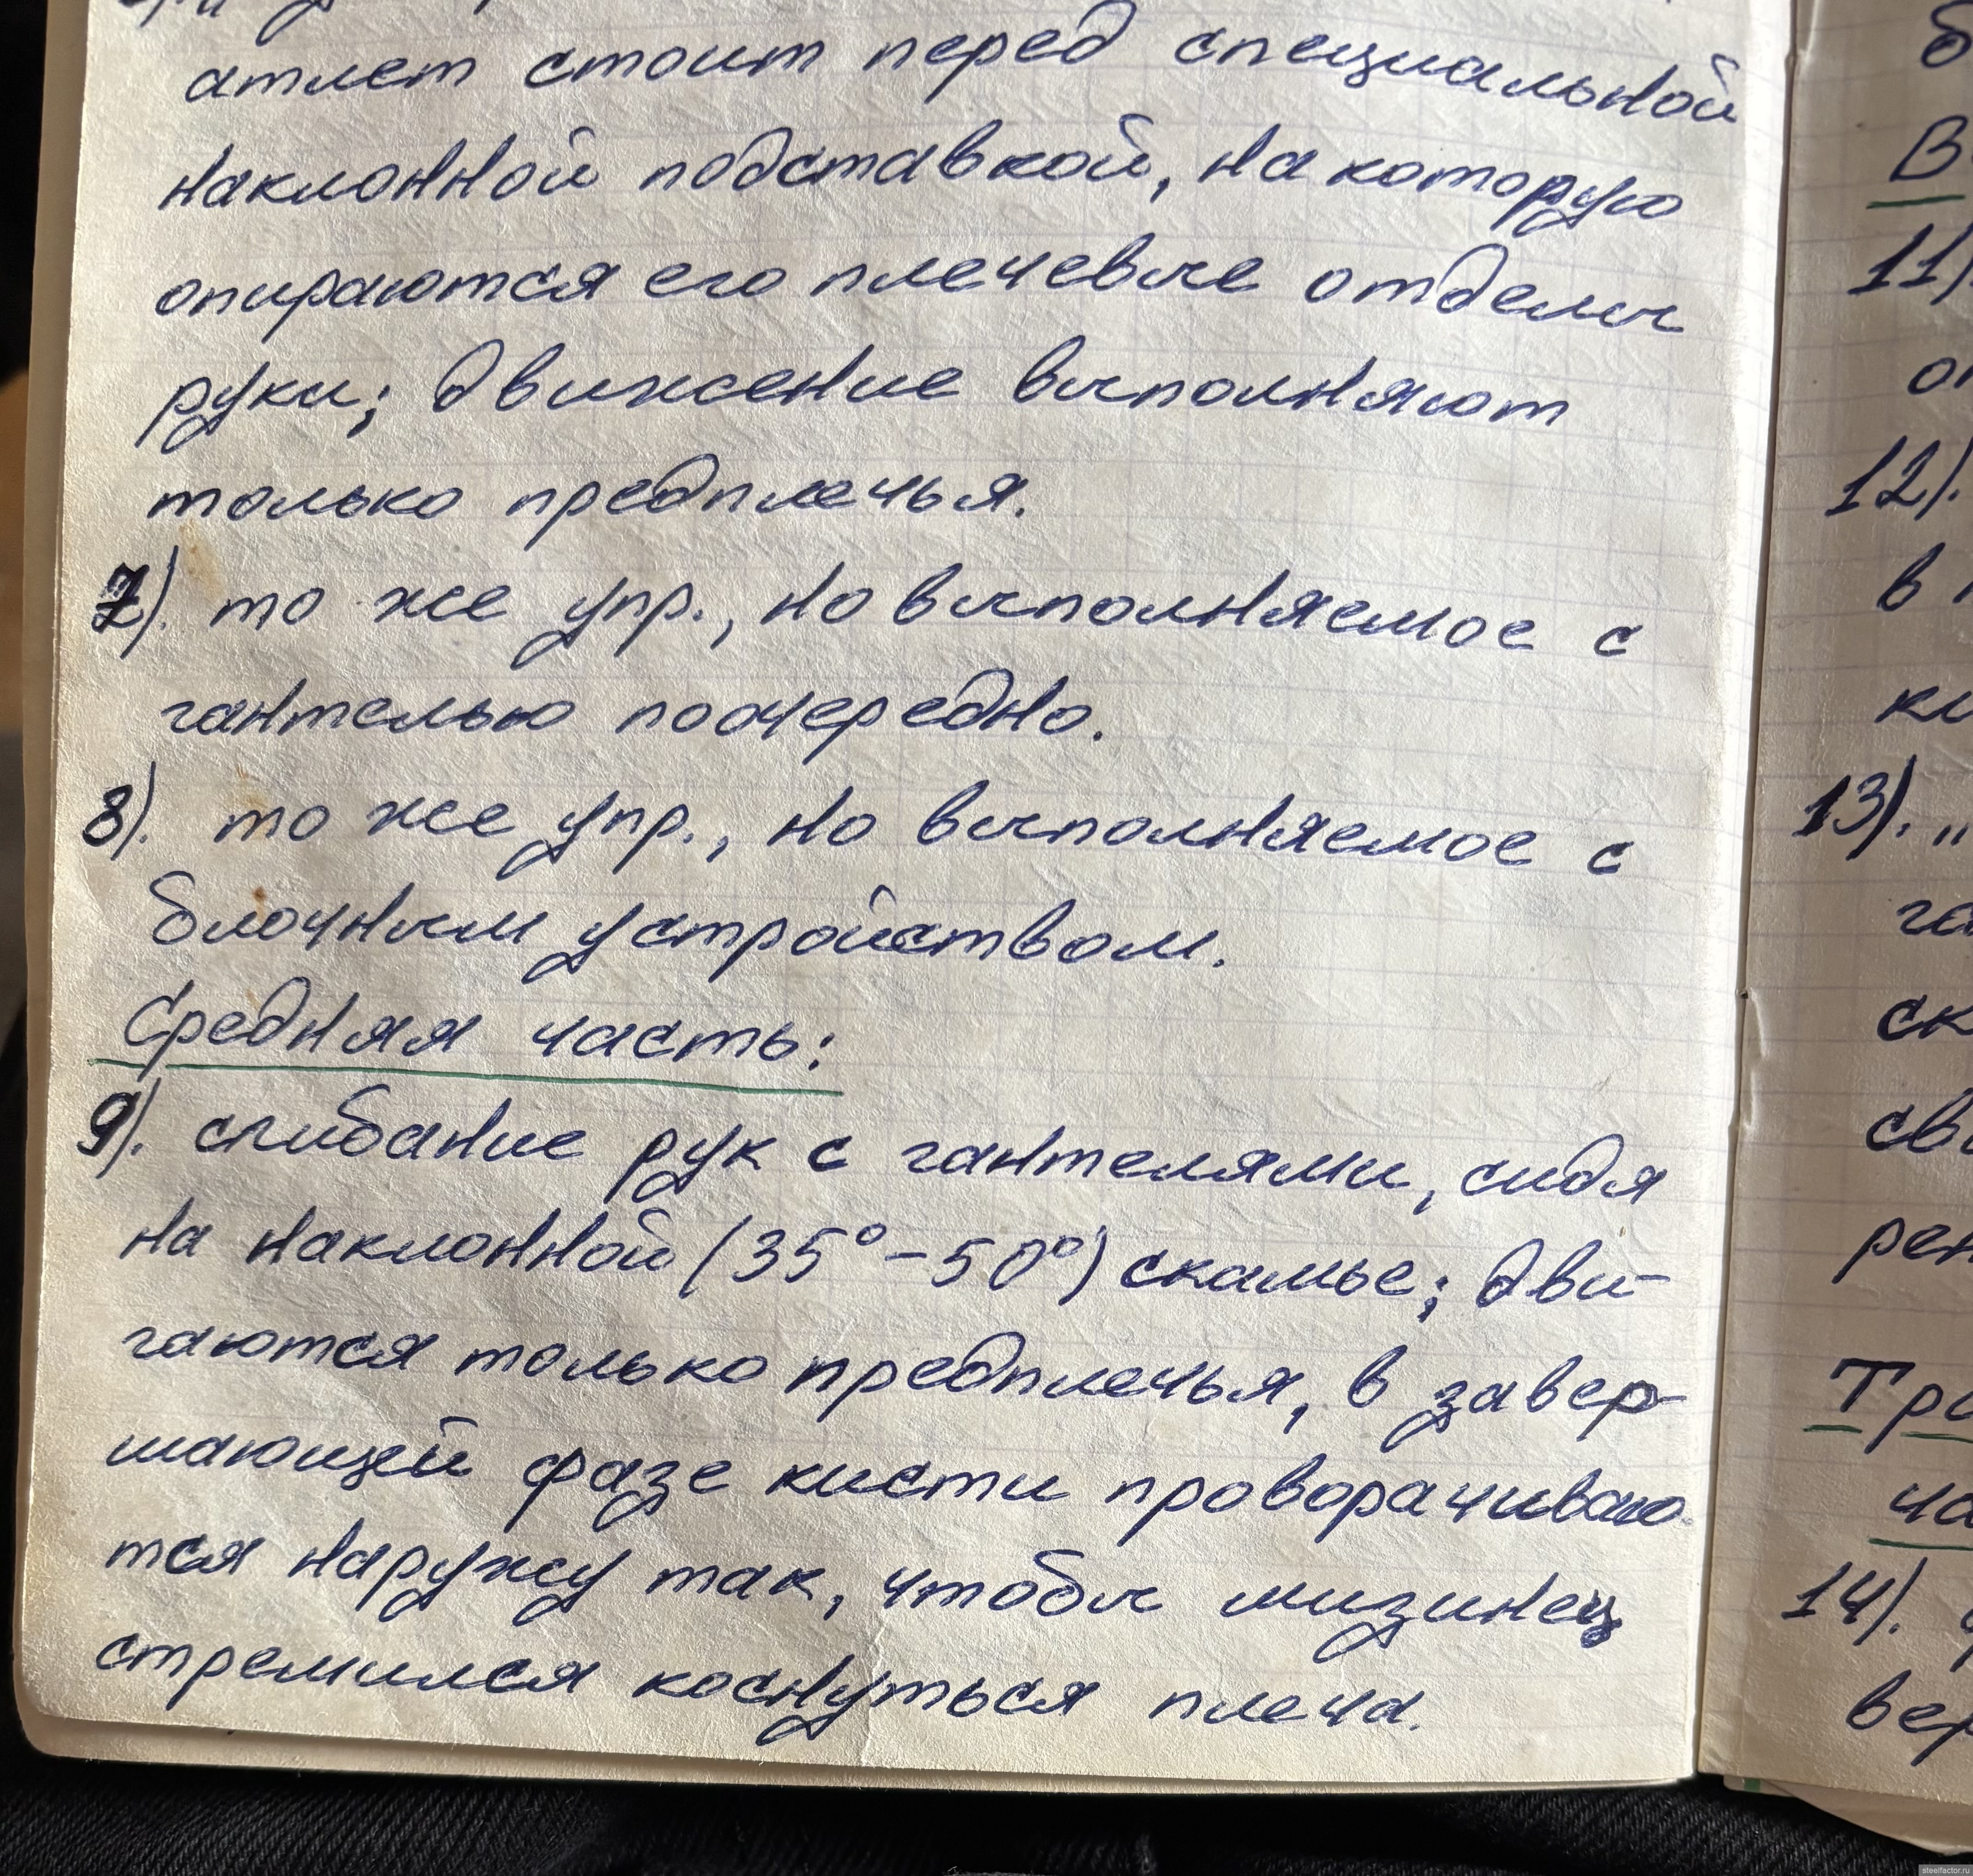 атлет стоит перед специальной
наклонной подставкой, на которую
опираются его плечевые отделы
руки; движение выполняют
только предплечья.
7). то же упр., но выполняемое с
гантелью поочередно.
8). то же упр., но выполняемое с
блочным устройством.
Средняя часть:
9). сгибание рук с гантелями, сидя
на наклонной (35°-50°) скамье; дви-
гаются только предплечья, в завер-
шающей фазе кисти проворачиваю-
тся наружу так, чтобы мизинец
стремился коснуться плеча.
11).
12).
в
13). „
14).
steelfactor.ru